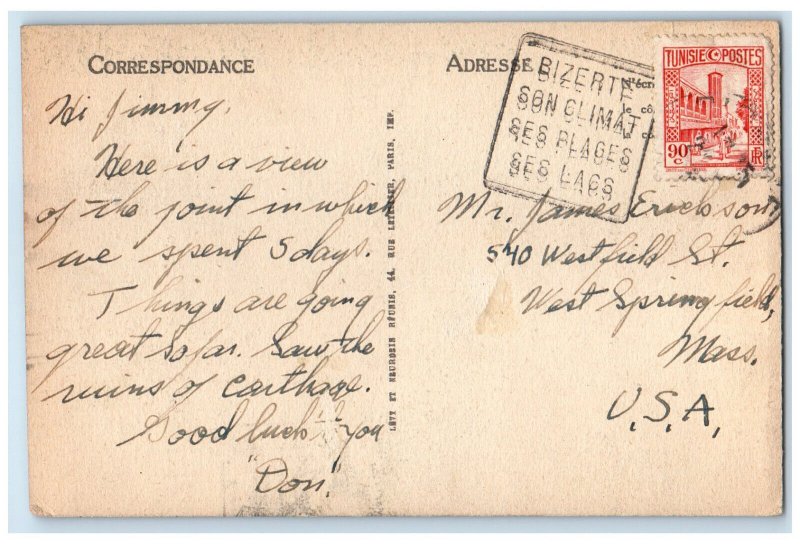 CORRESPONDANCE
Hi Jimmy,
Here is a view
of the joint in which
we spent 5 days.
Things are going
great so far. Saw the
ruins of Carthage.
Good luck to you
"Don."
LÉVY ET NEURDEIN RÉUNIS, 44, RUE LETELLIER, PARIS, IMP.
ADRESSE
BIZERTE
SON CLIMAT
SES PLAGES
SES LACS
TUNISIE POSTES
90 c
RF
Mr. James Erickson
540 Westfield St.
West Springfield,
Mass.
U.S.A,